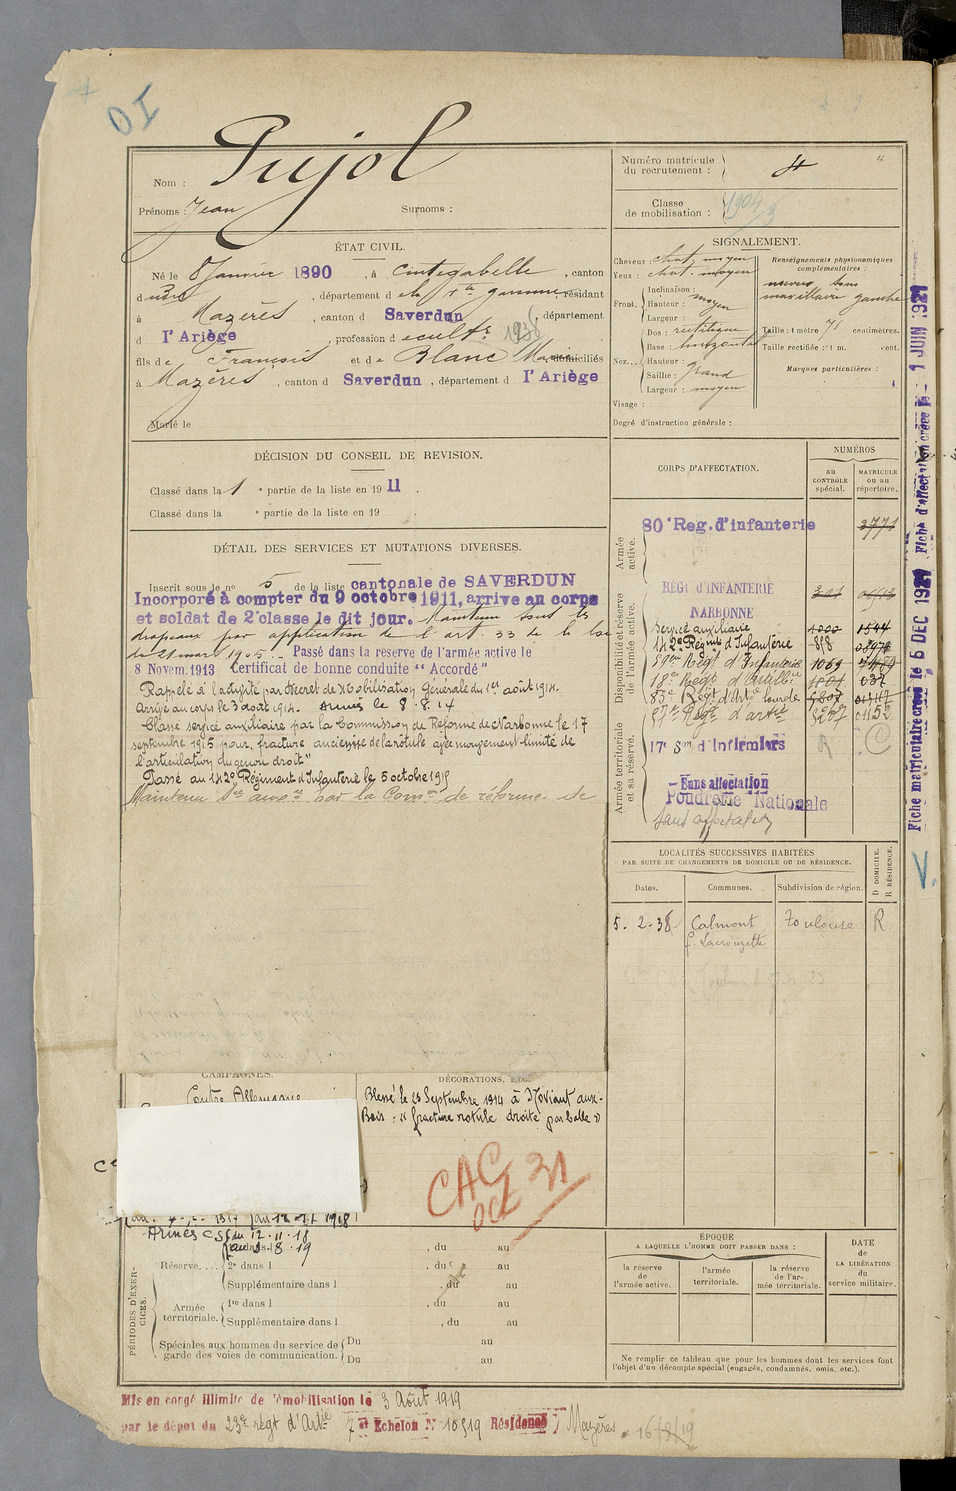 OI
Pujol
Nom :
Prénoms : Jean
Surnoms :
Numéro matricule
du recrutement :
4
Classe
de mobilisation :
1904
ÉTAT CIVIL.
Né le 8 Janvier 1890, à Cintegabelle, canton
d udit, département d e la Hte garonne, résidant
à Mazères, canton d Saverdun, département
d l'Ariège, profession d cultr
1938
fils de François et de Blanc Maria domiciliés
à Mazères, canton d Saverdun, département d l'Ariège
Marié le
SIGNALEMENT.
Cheveux : chat. moyen
Yeux : chat. moyen
Front. Inclinaison :
Hauteur : moyen
Largeur :
Nez... Dos : rectiligne
Base : horizontal
Hauteur :
Saillie : grand
Largeur : moyen
Visage :
Degré d'instruction générale :
Renseignements physionomiques
complémentaires :
maxillaire gauche
Taille : 1 mètre 71 centimètres.
Taille rectifiée : 1 m. cent.
Marques particulières :
DÉCISION DU CONSEIL DE REVISION.
Classé dans la 1 e partie de la liste en 1911.
Classé dans la e partie de la liste en 19 .
DÉTAIL DES SERVICES ET MUTATIONS DIVERSES.
Inscrit sous le n° 5 de la liste cantonale de SAVERDUN
Incorporé à compter du 9 octobre 1911, arrive au corps
et soldat de 2e classe le dit jour. Maintenu sous les
drapeaux par application de l'art. 33 de la loi
du 21 mars 1905. - Passé dans la reserve de l'armée active le
8 Novem. 1913 Certificat de bonne conduite "Accordé"
Rappelé à l'activité par Décret de Mobilisation Générale du 1er août 1914.
Arrivé au corps le 3 août 1914. Armées le 8.8.14
Classé service auxiliaire par la Commission de Réforme de Narbonne le 17
septembre 1915 pour "fracture ancienne de la rotule avec mouvement limité de
l'articulation du genou droit"
Passé au 142e Régiment d'Infanterie le 5 octobre 1915
Maintenu Sce auxre par la Comon de réforme de
CORPS D'AFFECTATION.
NUMÉROS
au
CONTRÔLE
spécial.
MATRICULE
ou au
répertoire.
Armée
active.
80e Reg. d'infanterie 2771
Disponibilité et réserve
de l'armée active.
RÉGt D'INFANTERIE
NARBONNE
Service auxiliaire 1544
142e Régimt d'Infanterie 818
Régt d'Infanterie 1069
18e Régt d'Artillie 037
83e Régt d'Artie lourde
Régt d'artie
Armée territoriale
et sa réserve.
17e Son d'Infirmiers R C
Sans affectation
Poudrerie Nationale
Sans affectation
LOCALITÉS SUCCESSIVES HABITÉES
PAR SUITE DE CHANGEMENTS DE DOMICILE OU DE RÉSIDENCE.
Dates.
Communes.
Subdivision de région.
D DOMICILE.
R RÉSIDENCE.
5. 2-38 Calmont Toulouse R
CAMPAGNES.
Contre Allemagne
DÉCORATIONS, ETC.
Blessé le 25 Septembre 1914 à Noviant aux-
Bois : "fracture rotule droite par balle"
CAC
OCt 31
Armées CS du 12.11.18
PÉRIODES D'EXERCICES.
, du au
Réserve.... 2e dans l , du au
Supplémentaire dans l , du au
Armée
territoriale. 1re dans l , du au
Supplémentaire dans l , du au
Spéciales aux hommes du service de
garde des voies de communication. Du au
Du au
ÉPOQUE
A LAQUELLE L'HOMME DOIT PASSER DANS :
la réserve
de
l'armée active.
l'armée
territoriale.
la réserve
de l'ar-
mée territoriale.
DATE
de
LA LIBÉRATION
du
service militaire.
Ne remplir ce tableau que pour les hommes dont les services font
l'objet d'un décompte spécial (engagés, condamnés, omis, etc.).
Mis en congé illimité de démobilisation le 3 Août 1919
par le dépôt du 23e régt d'Artie 7 et Echelon N° 10519 Résidence Mazères
Fiche matriculaire créée le 5 DEC 1927 Fiche d'affectation créée le 1 JUIN 1927
V.